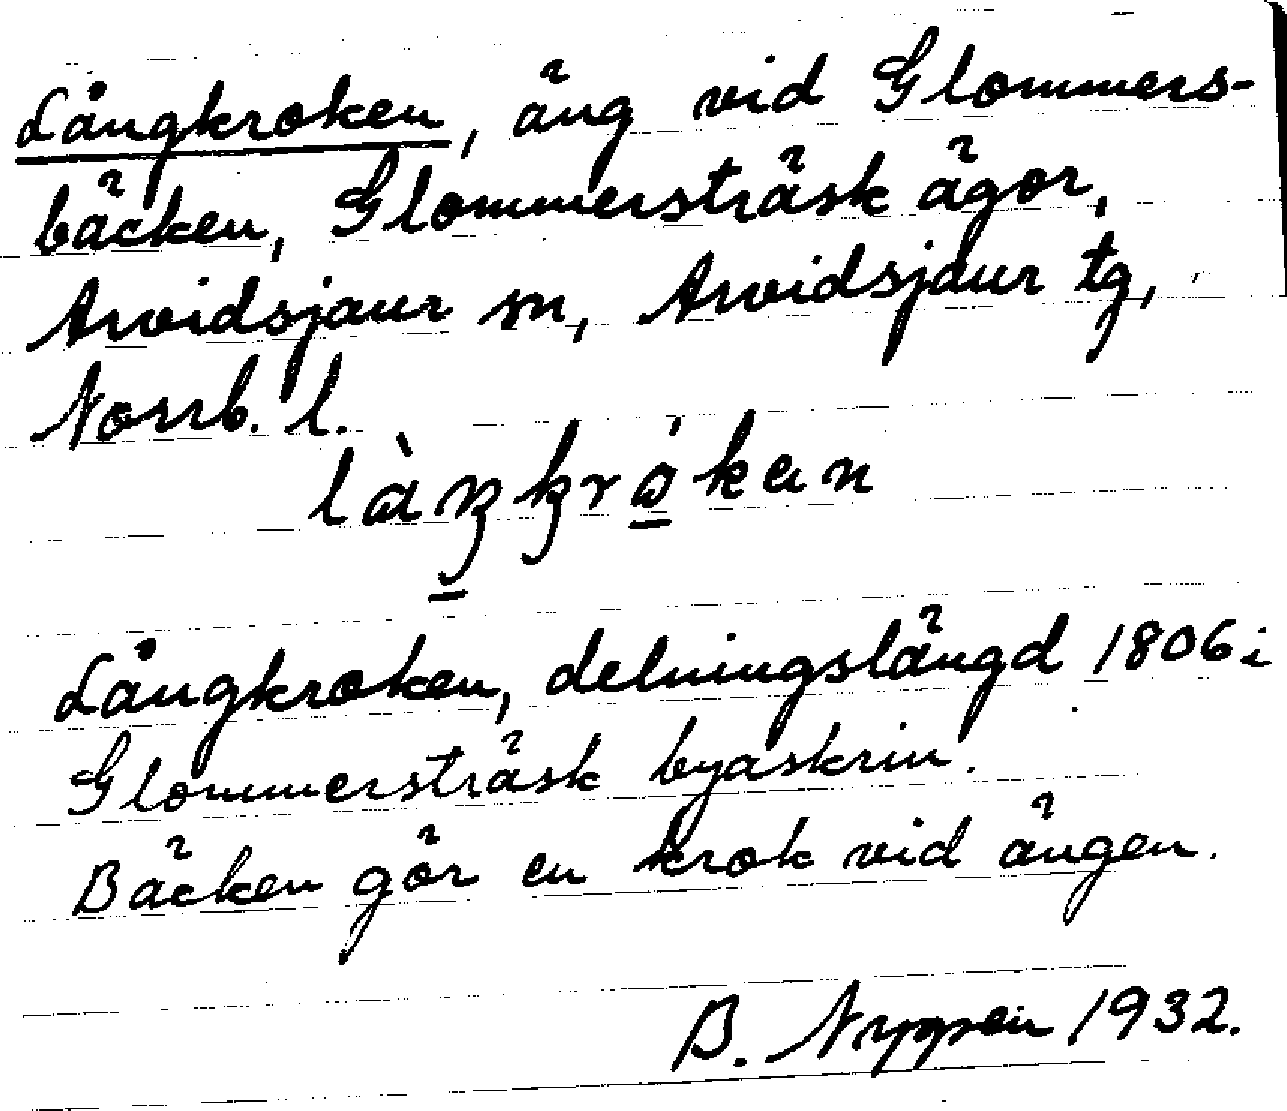 Långkroken, äng vid Glommers-
bäcken, Glommersträsk ägor,
Arvidsjaur sn, Arvidsjaur tg,
Norrb. l.
Långkroken, delningslängd 1806 i
Glommersträsk byaskrin.
Bäcken gör en krok vid ängen.
B. Nygren 1932.